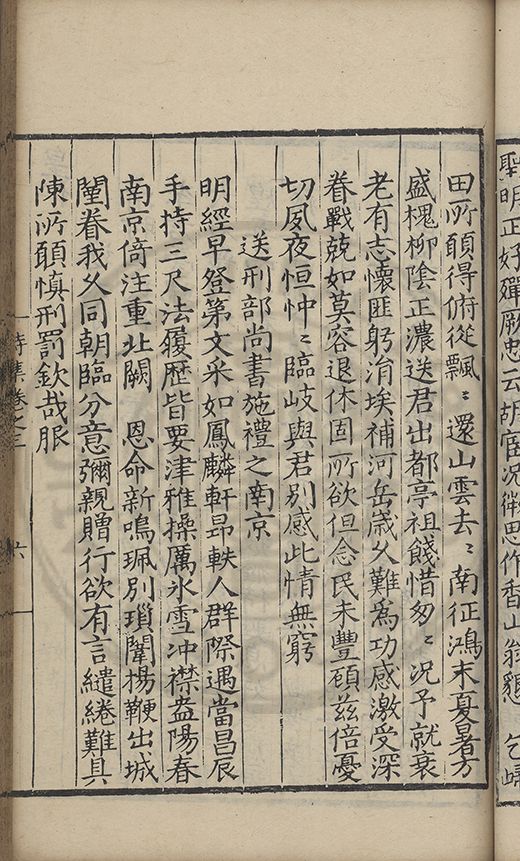 聖明正好殫厥忠云胡宦況微思作香山翁懇　乞歸
田所願得俯從飄〻還山雲去〻南征鴻末夏暑方
盛槐柳陰正濃送君出都亭祖餞惜匆〻況予就衰
老有志懷匪躬涓埃補河岳嵗久難為功感激受深
眷戰兢如莫容退休固所欲但念民未豐顧茲倍憂
切夙夜恒忡〻臨岐與君別感此情無窮
送刑部尚書施禮之南京
明經早登第文采如鳳麟軒昻軼人群際遇當昌辰
手持三尺法履歴皆要津雅操厲氷雪冲襟盎陽春
南京倚注重北闕　恩命新鳴珮別瑣闈楊鞭出城
闉眷我久同朝臨分意彌親贈行欲有言繾綣難具
陳所願慎刑罰欽哉服
詩集卷之三　六